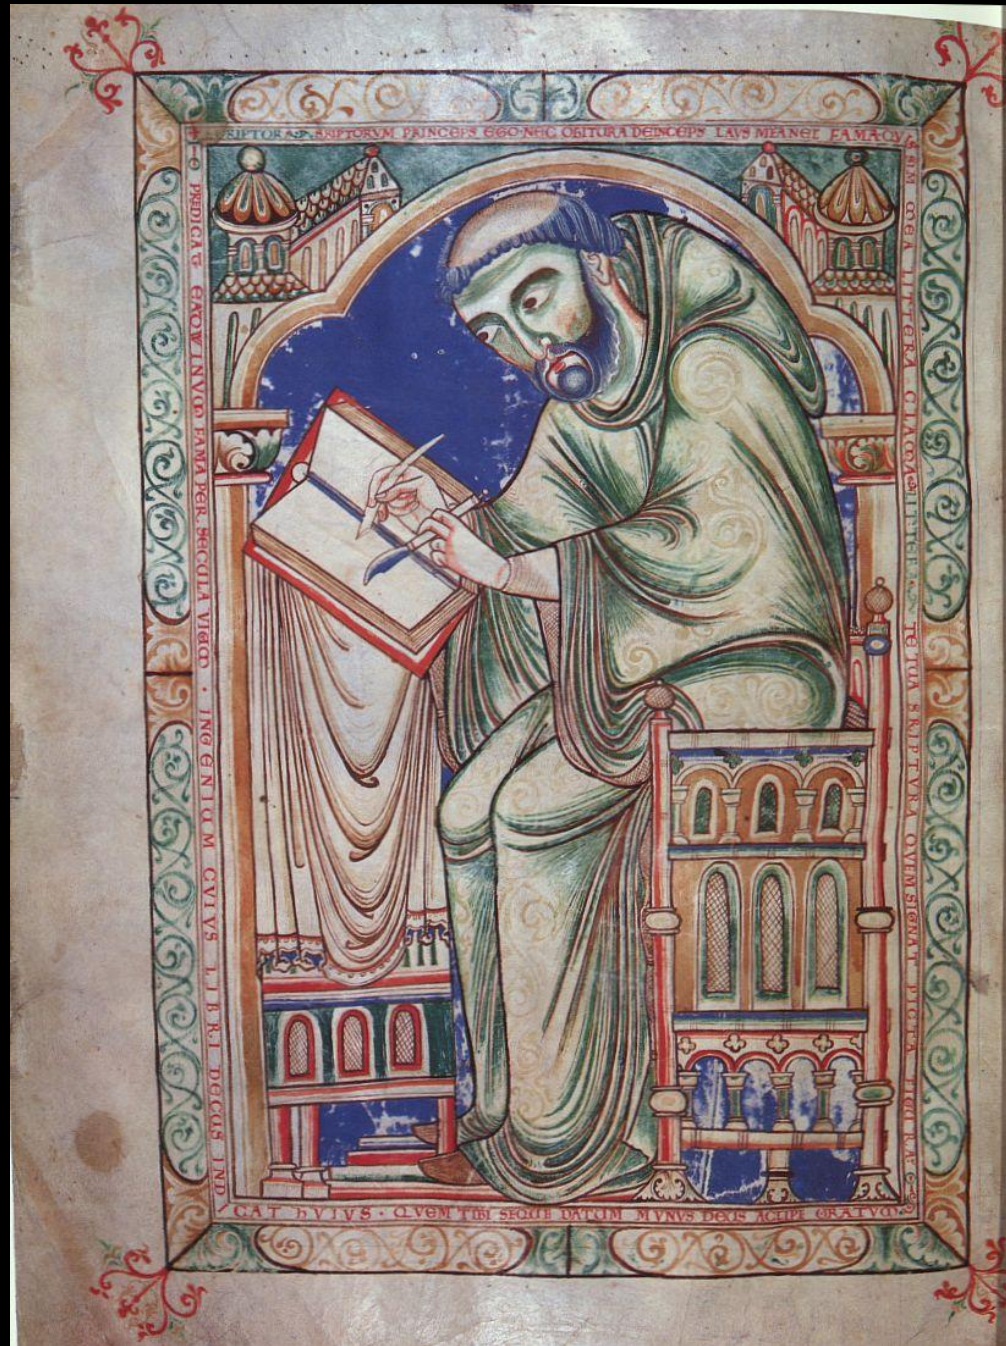 SRIPTORVM PRINCEPS EGO·NEC OBITURA DEINCEPS LAVS MEA NEC FAMA·QVI
S SIM MEA LITTERA CLAMA LITTERA TE TUA SKRIPTVRA QVEM SIGNAT PICTA FIGURA
PREDICAT EADWINVM FAMA PER SECULA VIVUM · INGENIUM CVIVS LIBRI DECUS IND
ICAT HVIVS · QVEM TIBI SEQUE DATUM MVNVS DEUS ACCIPE GRATVM